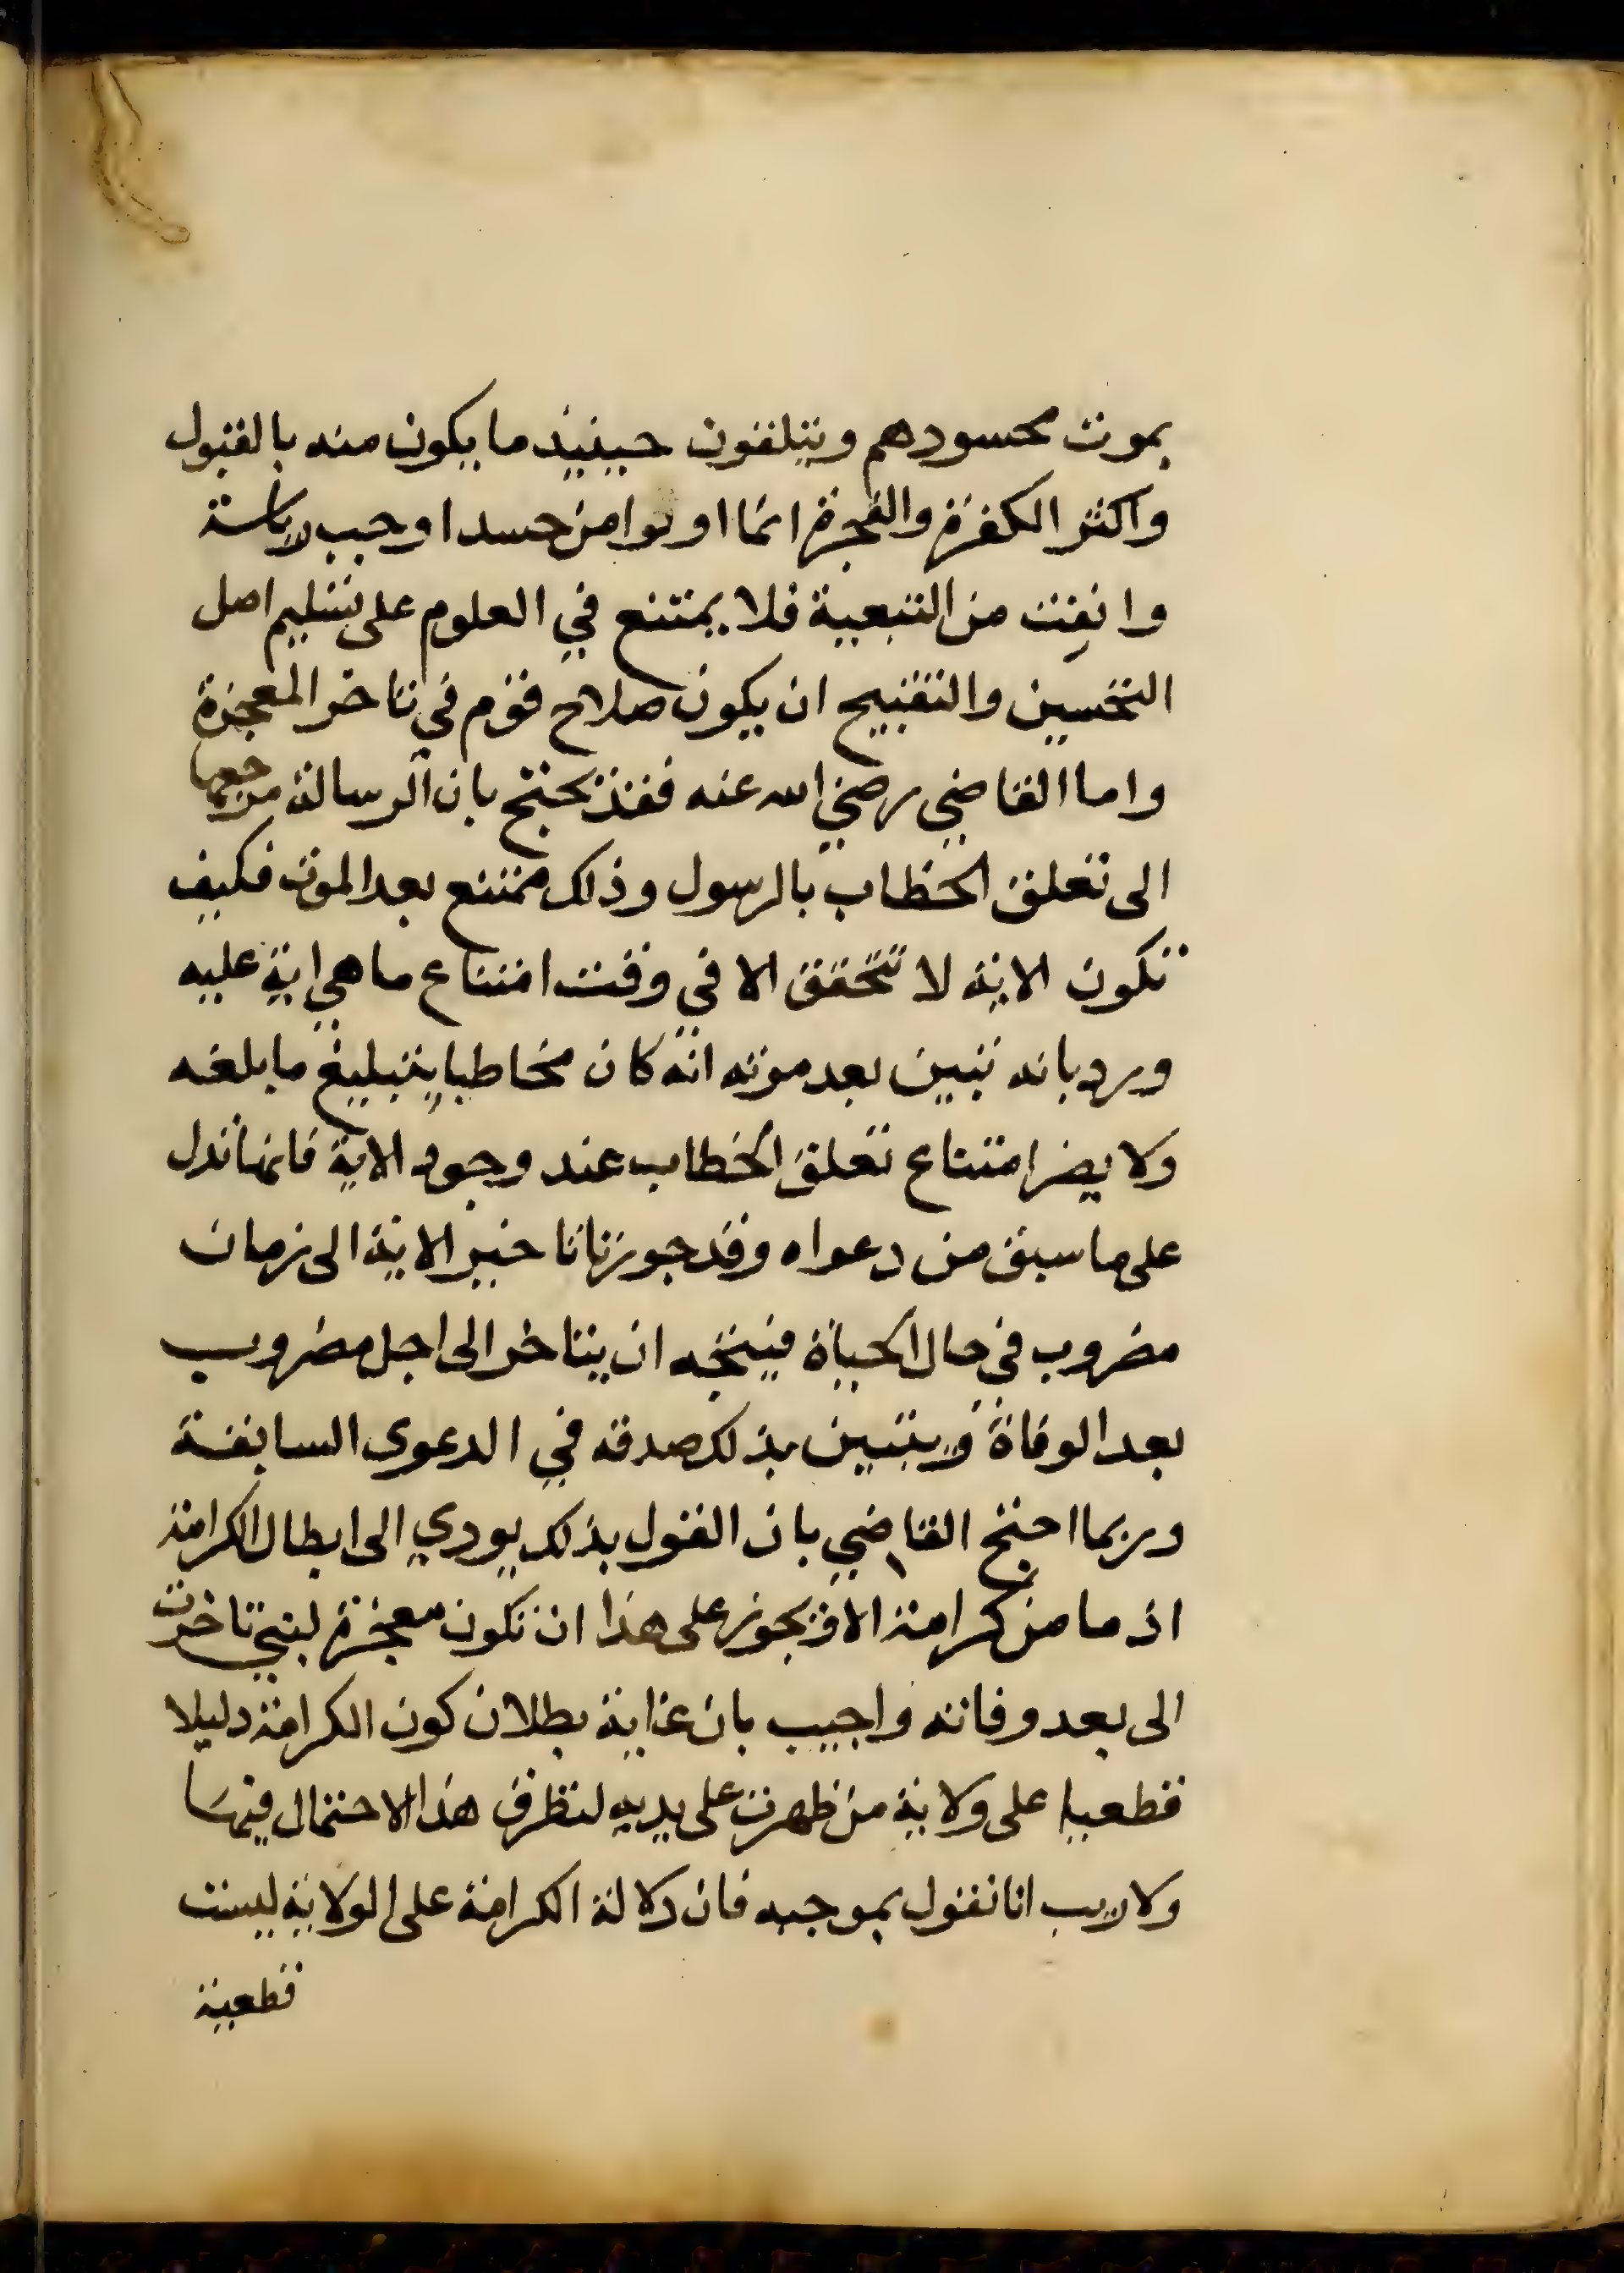 بموت محسودهم ويتلقون حينيذ ما يكون منه بالقبول
واكثر الكفرة والفجرة انما اوتوا من حسد او حب رياسة
وانفت من التبعية فلا يمتنع في العلوم على تسليم اصل
التحسين والتقبيح ان يكون صلاح قوم في تاخر المعجزة
واما القاضي رضي الله عنه فقد يحتج بان الرسالة مرجعها
الى تعلق الخطاب بالرسول وذلك ممتنع بعد الموت فكيف
تكون الاية لا تتحقق الا في وقت امتناع ما هي اية عليه
ورد بانه تبين بعد موته انه كان مخاطبا بتبليغ ما بلغه
ولا يضر امتناع تعلق الخطاب عند وجود الاية فانها تدل
على ما سبق من دعواه وقد جوزنا تاخير الاية الى زمان
مضروب في حال الحياة فيتجه ان يتاخر الى اجل مضروب
بعد الوفاة ويتبين بذلك صدقه في الدعوى السابقة
وربما احتج القاضي بان القول بذلك يودي الى ابطال الكرامة
اذ ما من كرامة الا ويجوز على هذا ان تكون معجزة لنبي تاخرت
الى بعد وفاته واجيب بان غاية بطلان كون الكرامة دليلا
قطعيا على ولاية من ظهرت على يديه لتطرق هذا الاحتمال فيها
ولا ريب انا نقول بموجبه فان دلالة الكرامة على الولاية ليست
قطعية